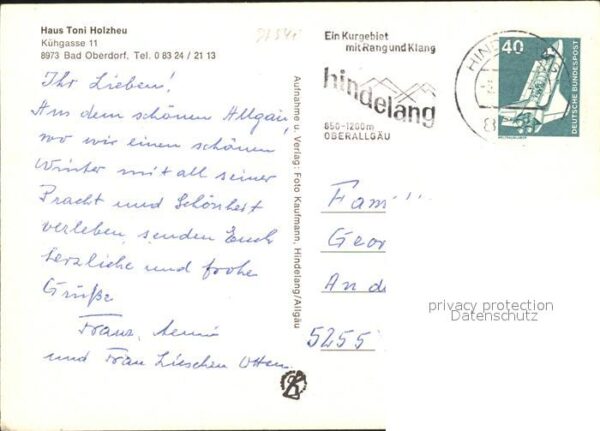 Haus Toni Holzheu
Kühgasse 11
8973 Bad Oberdorf, Tel. 0 83 24 / 21 13
Ihr Lieben!
Aus dem schönen Allgäu,
wo wir einen schönen
Winter mit all seiner
Pracht und Schönheit
verleben, senden Euch
herzliche und frohe
Grüße
Franz,
und Frau Lieschen Otten
Aufnahme u. Verlag: Foto Kaufmann, Hindelang/Allgäu
Ein Kurgebiet
mit Rang und Klang
hindelang
850-1200m
OBERALLGÄU
HIND
40
DEUTSCHE BUNDESPOST
Fam
Geor
An d
5255
privacy protection
Datenschutz